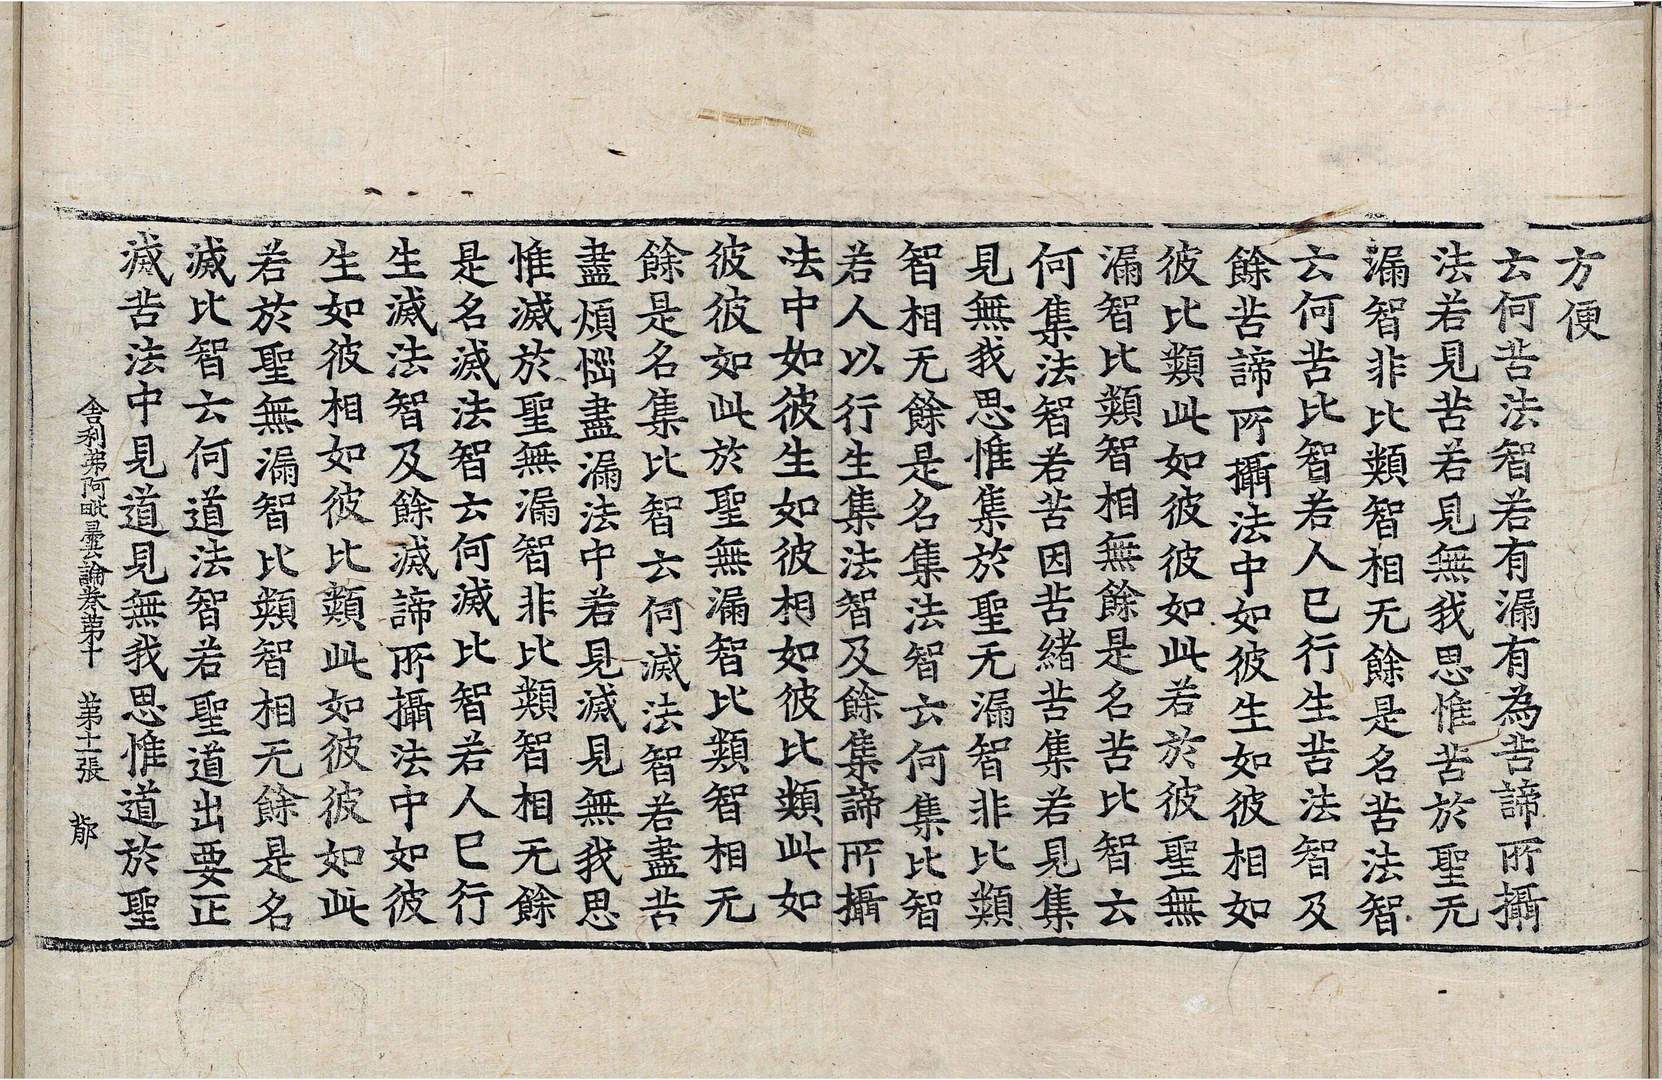 方便
云何苦法智若有漏有為苦諦所攝
法若見苦若見無我思惟苦於聖无
漏智非比類智相无餘是名苦法智
云何苦比智若人已行生苦法智及
餘苦諦所攝法中如彼生如彼相如
彼比類此如彼彼如此若於彼聖無
漏智比類智相無餘是名苦比智云
何集法智若苦因苦緒苦集若見集
見無我思惟集於聖无漏智非比類
智相无餘是名集法智云何集比智
若人以行生集法智及餘集諦所攝
法中如彼生如彼相如彼比類此如
彼彼如此於聖無漏智比類智相无
餘是名集比智云何滅法智若盡苦
盡煩惱盡漏法中若見滅見無我思
惟滅於聖無漏智非比類智相无餘
是名滅法智云何滅比智若人已行
生滅法智及餘滅諦所攝法中如彼
生如彼相如彼比類此如彼彼如此
若於聖無漏智比類智相无餘是名
滅比智云何道法智若聖道出要正
滅苦法中見道見無我思惟道於聖
舍利弗阿毗曇論卷第十 第十一張